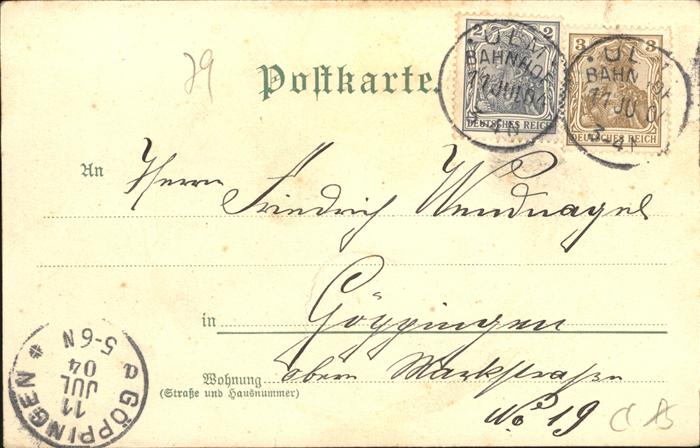 79
Postkarte.
2 2
DEUTSCHES REICH
3 3
DEUTSCHES REICH
ULM
BAHNHOF
11 JUL 04
ULM
BAHNHOF
11 JUL 04
3-4N
An Herrn Friedrich Wendnagel
in Göppingen
Wohnung obere Marktstraße
(Straße und Hausnummer)
No 19
GÖPPINGEN
11
JUL
04
5-6N